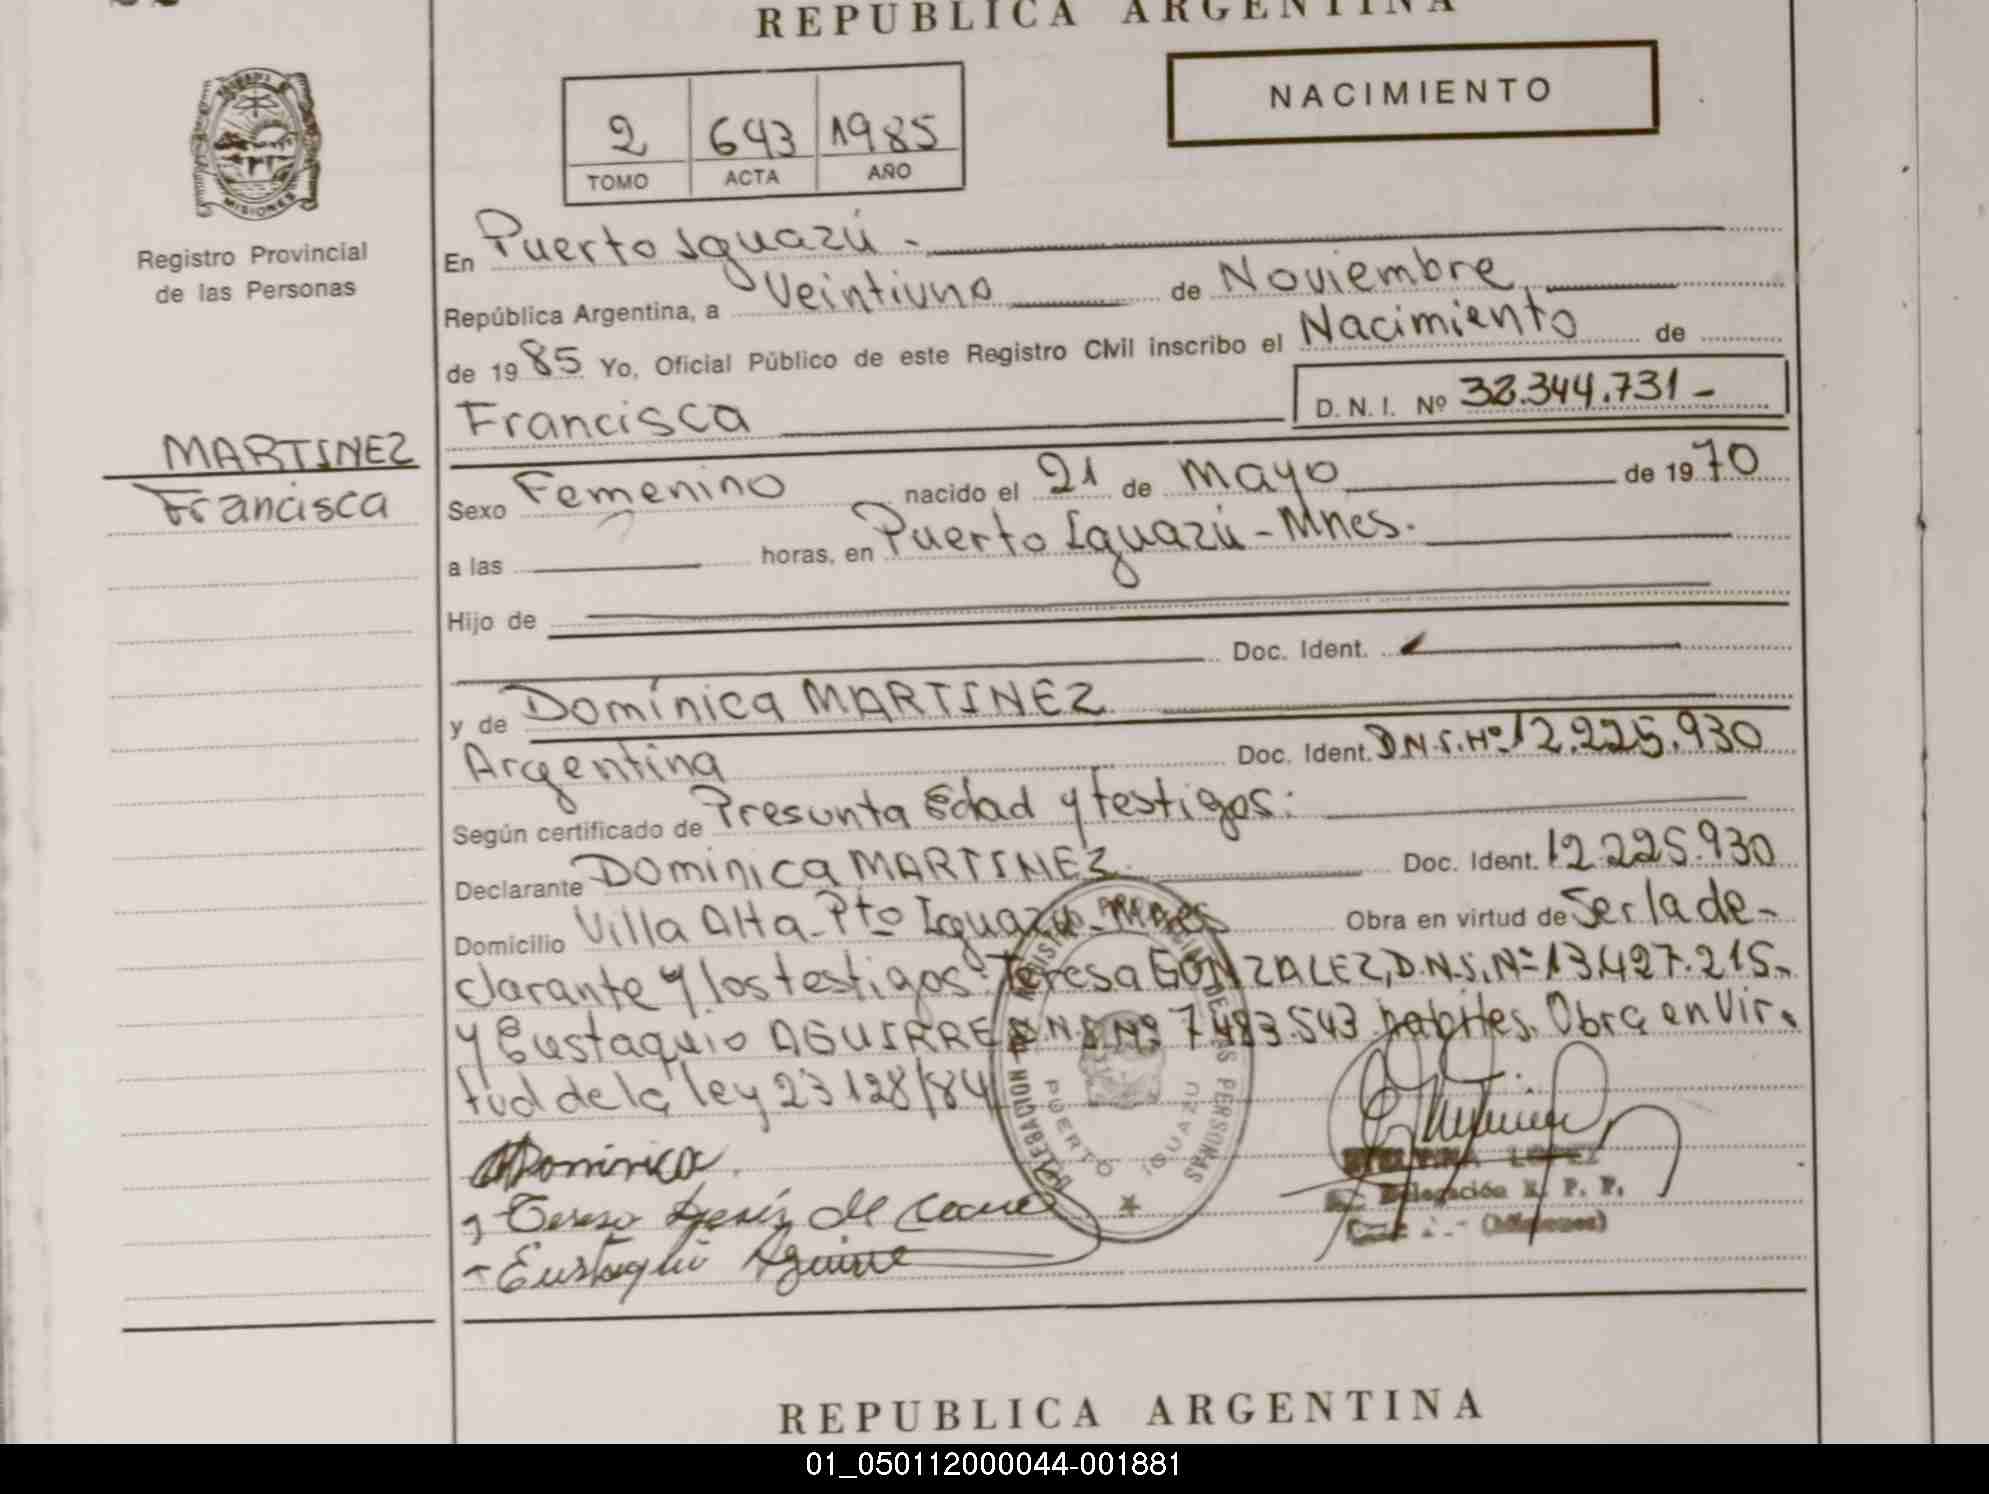 REPUBLICA ARGENTINA
NACIMIENTO
2 643 1985
TOMO ACTA AÑO
MISIONES
Registro Provincial
de las Personas
MARTINEZ
Francisca
En Puerto Iguazú -
República Argentina, a Veintiuno de Noviembre
de 1985 Yo, Oficial Público de este Registro Civil inscribo el Nacimiento de
Francisca D. N. I. Nº 38.344.731 -
Sexo Femenino nacido el 21 de Mayo de 1970
a las horas, en Puerto Iguazú - Mnes.
Hijo de
Doc. Ident.
y de Domínica MARTINEZ
Argentina Doc. Ident. D.N.I. Nº 12.225.930
Según certificado de Presunta Edad y testigos:
Declarante Domínica MARTINEZ Doc. Ident. 12.225.930
Domicilio Villa Alta - Pto Iguazú - Mnes Obra en virtud de Ser la de-
clarante y los testigos: Teresa GONZALEZ, D.N.I. Nº 13.427.215-
y Eustaquio AGUIRRE D.N.I. Nº 7.483.543 habiles. Obra en Vir-
tud de la ley 23128/84
DELEGACION PUERTO IGUAZU
Dominica
Teresa
- Eustaquio Aguirre
LOPEZ
Delegación R. P. P.
(Misiones)
REPUBLICA ARGENTINA
01_050112000044-001881